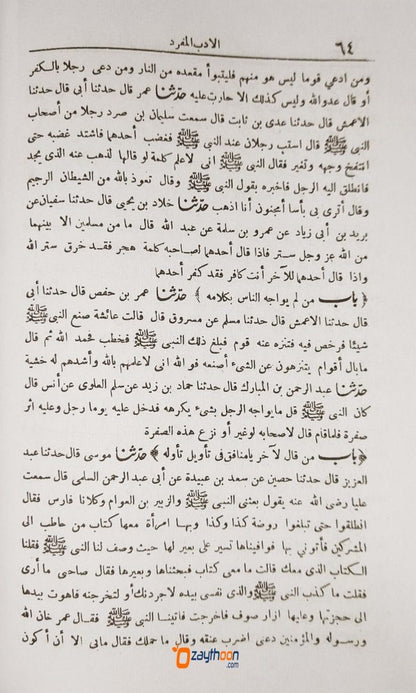 ٦٤
الادب المفرد
ومن ادعي قوما ليس هو منهم فليتبوأ مقعده من النار ومن دعى رجلا بالكفر
أو قال عدو الله وليس كذلك الا حارت عليه حدثنا عمر قال حدثنا أبى قال حدثنا
الاعمش قال حدثنا عدى بن ثابت قال سمعت سليمان بن صرد رجلا من أصحاب
النبي ﷺ قال استب رجلان عند النبي ﷺ فغضب أحدهما فاشتد غضبه حتى
انتفخ وجهه وتغير فقال النبي ﷺ انى لاعلم كلمة لو قالها لذهب عنه الذى يجد
فانطلق اليه الرجل فاخبره بقول النبي ﷺ وقال تعوذ بالله من الشيطان الرجيم
وقال أترى بى بأسا أمجنون أنا اذهب حدثنا خلاد بن يحيى قال حدثنا سفيان عن
يزيد بن أبى زياد عن عمرو بن سلمة عن عبد الله قال ما من مسلمين الا بينهما
من الله عز وجل ستر فاذا قال أحدهما لصاحبه كلمة هجر فقد خرق ستر الله
واذا قال أحدهما للآخر أنت كافر فقد كفر أحدهما
﴿ باب من لم يواجه الناس بكلامه ﴾ حدثنا عمر بن حفص قال حدثنا أبى
قال حدثنا الاعمش قال حدثنا مسلم عن مسروق قال قالت عائشة صنع النبي ﷺ
شيئا فرخص فيه فتنزه عنه قوم فبلغ ذلك النبي ﷺ فخطب فحمد الله ثم قال
مابال أقوام يتنزهون عن الشىء أصنعه فو الله انى لاعلمهم بالله وأشدهم له خشية
حدثنا عبد الرحمن بن المبارك قال حدثنا حماد بن زيد عن سلم العلوى عن أنس قال
كان النبي ﷺ قل مايواجه الرجل بشىء يكرهه فدخل عليه يوما رجل وعليه اثر
صفرة فلما قام قال لاصحابه لو غير أو نزع هذه الصفرة
﴿ باب من قال لآخر يامنافق فى تأويل تأوله ﴾ حدثنا موسى قال حدثنا عبد
العزيز قال حدثنا حصين عن سعد بن عبيدة عن أبى عبد الرحمن السلمى قال سمعت
عليا رضى الله عنه يقول بعثنى النبي ﷺ والزبير بن العوام وكلانا فارس فقال
انطلقوا حتى تبلغوا روضة كذا وكذا وبها امرأة معها كتاب من حاطب الى
المشركين فأتونى بها فوافيناها تسير على بعير لها حيث وصف لنا النبي ﷺ فقلنا
الكتاب الذى معك قالت ما معى كتاب فبحثناها وبعيرها فقال صاحبى ما أرى
فقلت ما كذب النبي ﷺ والذى نفسى بيده لاجردنك أو لتخرجنه فاهوت بيدها
الى حجزتها وعليها ازار صوف فاخرجت فاتينا النبي ﷺ فقال عمر خان الله
ورسوله والمؤمنين دعنى اضرب عنقه وقال ما حملك فقال مابى الا أن أكون
zaythoon
.com